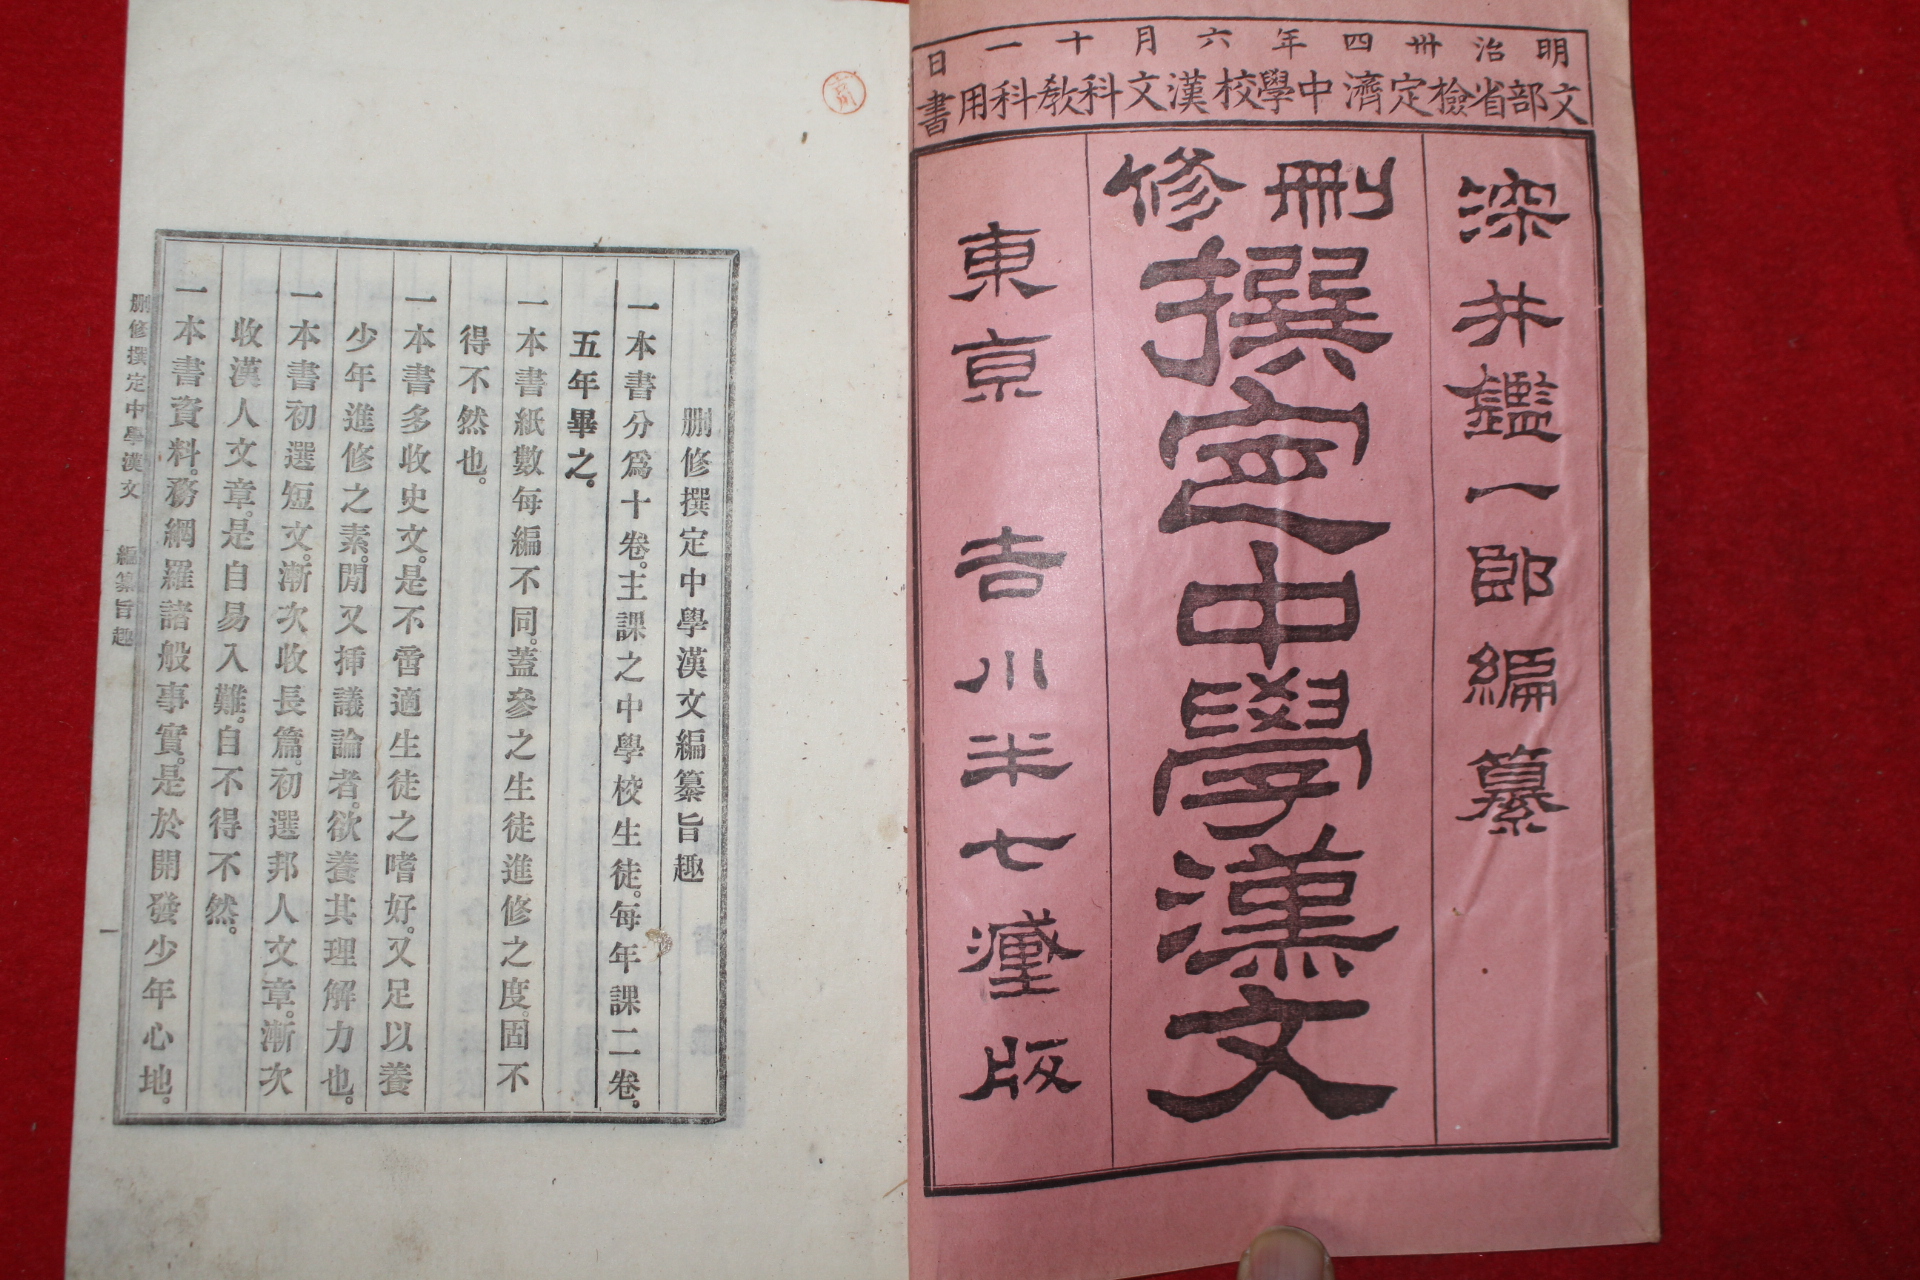 明治卅四年六月十一日
文部省檢定濟中學校漢文科教科用書
深井鑑一郎編纂
刪修
撰定中學漢文
東京 吉川半七藏版
刪修撰定中學漢文編纂旨趣
一本書分爲十卷。主課之中學校生徒。每年課二卷。
五年畢之。
一本書紙數每編不同。蓋參之生徒進修之度。固不
得不然也。
一本書多收史文。是不啻適生徒之嗜好。又足以養
少年進修之素。間又揷議論者。欲養其理解力也。
一本書初選短文。漸次收長篇。初選邦人文章。漸次
收漢人文章。是自易入難。自不得不然。
一本書資料。務網羅諸般事實。是於開發少年心地。
刪修撰定中學漢文 編纂旨趣
一